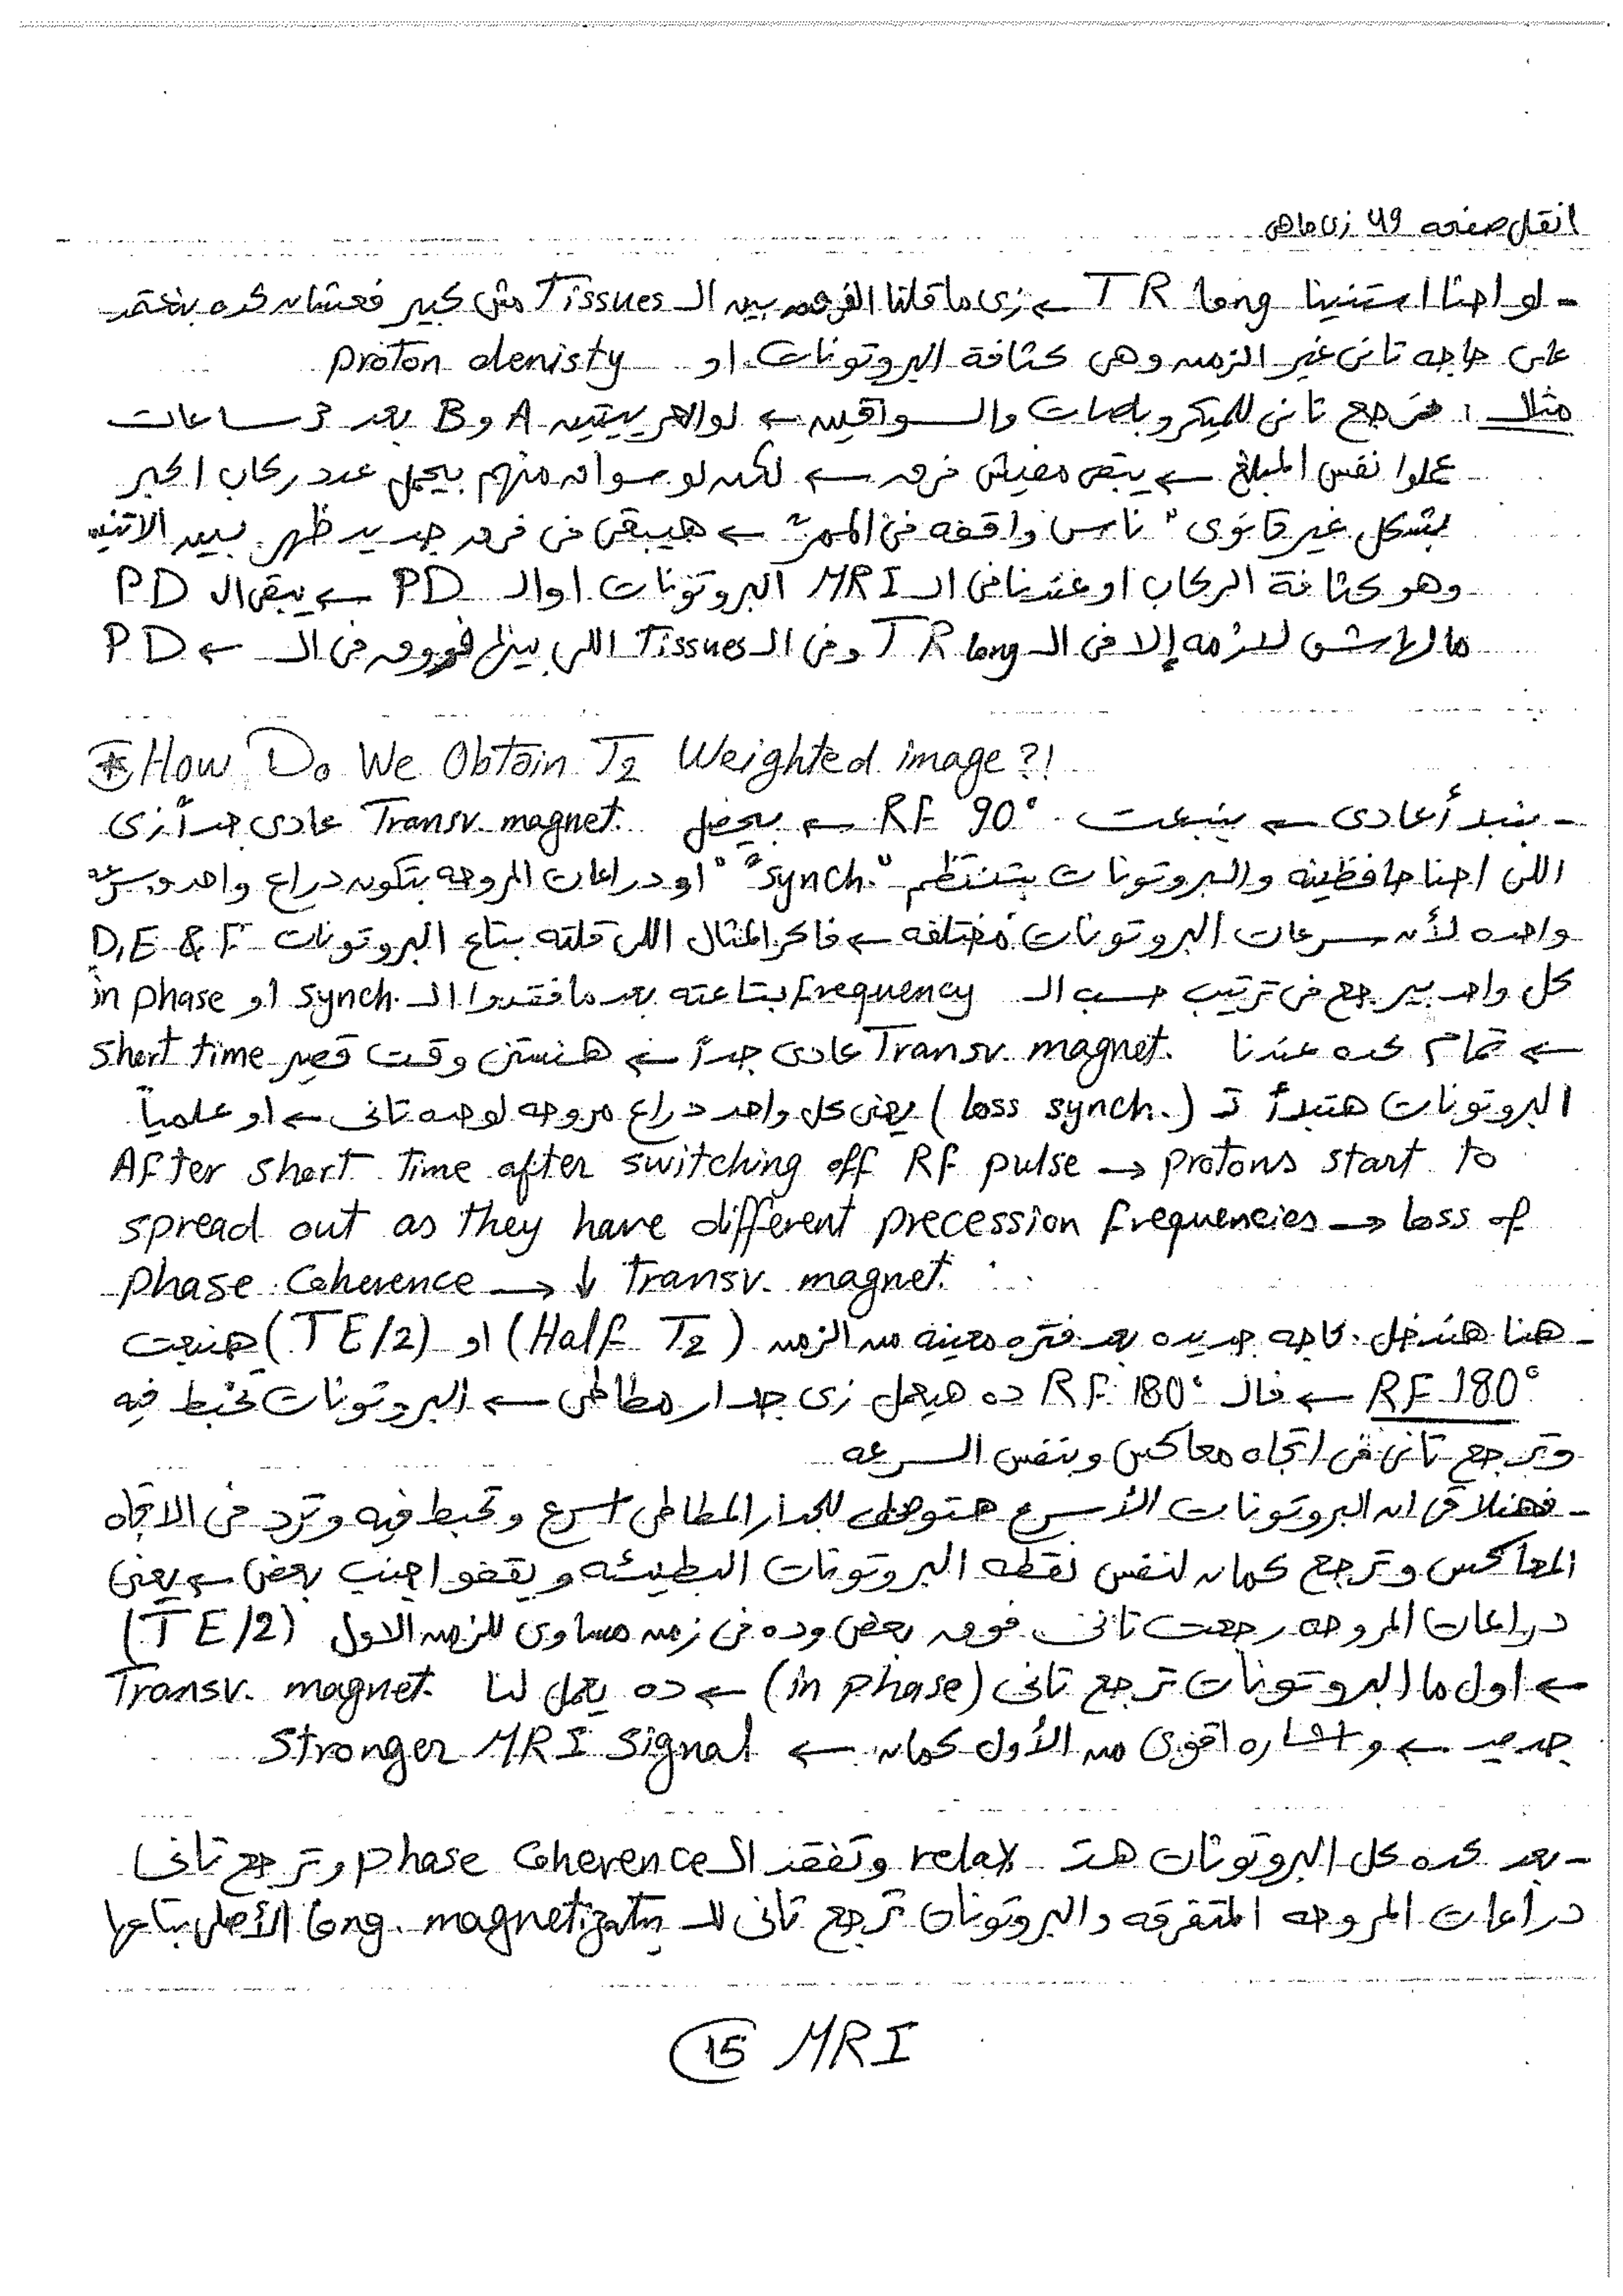 انقل صفحه 49 زى ماهى
- لو احنا استنينا TR long ← زى ما قلنا الفرق بين الـ Tissues مش كبير فعشان كده بنعتمد
على حاجه تانى غير الزمن وهى كثافة البروتونات او proton denisty
مثلا : نرجع تانى للميكروباصات والسواقين ← لو العربيتين A و B بعد 3 ساعات
عملوا نفس المبلغ ← يبقى مفيش فرق ← لكن لو سواق منهم بيحمل عدد ركاب اكبر
بشكل غير قانونى " ناس واقفه فى الممر " ← هيبقى فى فرق جديد ظهر بين الاتنين
وهو كثافة الركاب او عندنا فى الـ MRI البروتونات او الـ PD ← يبقى الـ PD
مالهاش لازمه إلا فى الـ TR long وفى الـ Tissues اللى بينها فروق فى الـ ← PD
* How Do We Obtain T2 Weighted image?!
- بنبدأ عادى ← بنبعت RF 90° ← بيحصل Transv. magnet. عادى جداً زى
اللى احنا حافظينه والبروتونات بتنتظم "synch." او دراعات المروحه بتكون دراع واحد وسرعه
واحده لأن سرعات البروتونات مختلفه ← فاكر المثال اللى قلته بتاع البروتونات D,E & F
كل واحد بيرجع فى ترتيب حسب الـ frequency بتاعته بعد ما فقدوا الـ synch. او in phase
← تمام كده عندنا Transv. magnet. عادى جداً ← هنستنى وقت قصير short time
البروتونات هتبدأ تـ (loss synch.) يعنى كل واحد دراع مروحه لوحده تانى ← او علمياً
After short Time after switching off RF pulse → protons start to
spread out as they have different precession frequencies → loss of
phase Coherence → ↓ Transv. magnet.
- هنا هندخل حاجه جديده بعد فتره معينه من الزمن (Half T2) او (TE/2) هنبعت
RF 180° ← فالـ RF 180° ده هيعمل زى جدار مطاطى ← البروتونات تخبط فيه
وترجع تانى فى اتجاه معاكس وبنفس السرعه
- فهنلاقى ان البروتونات الأسرع هتوصل للجدار المطاطى اسرع وتخبط فيه وترد فى الاتجاه
المعاكس وترجع كمان لنفس نقطه البروتونات البطيئه ويقفوا جنب بعض ← يعنى
دراعات المروحه رجعت تانى فوق بعض وده فى زمن مساوى للزمن الاول (TE/2)
← اول ما البروتونات ترجع تانى (in phase) ← ده يعمل لنا Transv. magnet.
جديد ← واشاره اقوى من الأول كمان ← Stronger MRI Signal
- بعد كده كل البروتونات هتـ relax وتفقد الـ phase Coherence وترجع تانى
دراعات المروحه المتفرقه والبروتونات ترجع تانى للـ long. magnetization الأصلى بتاعها
15 MRI